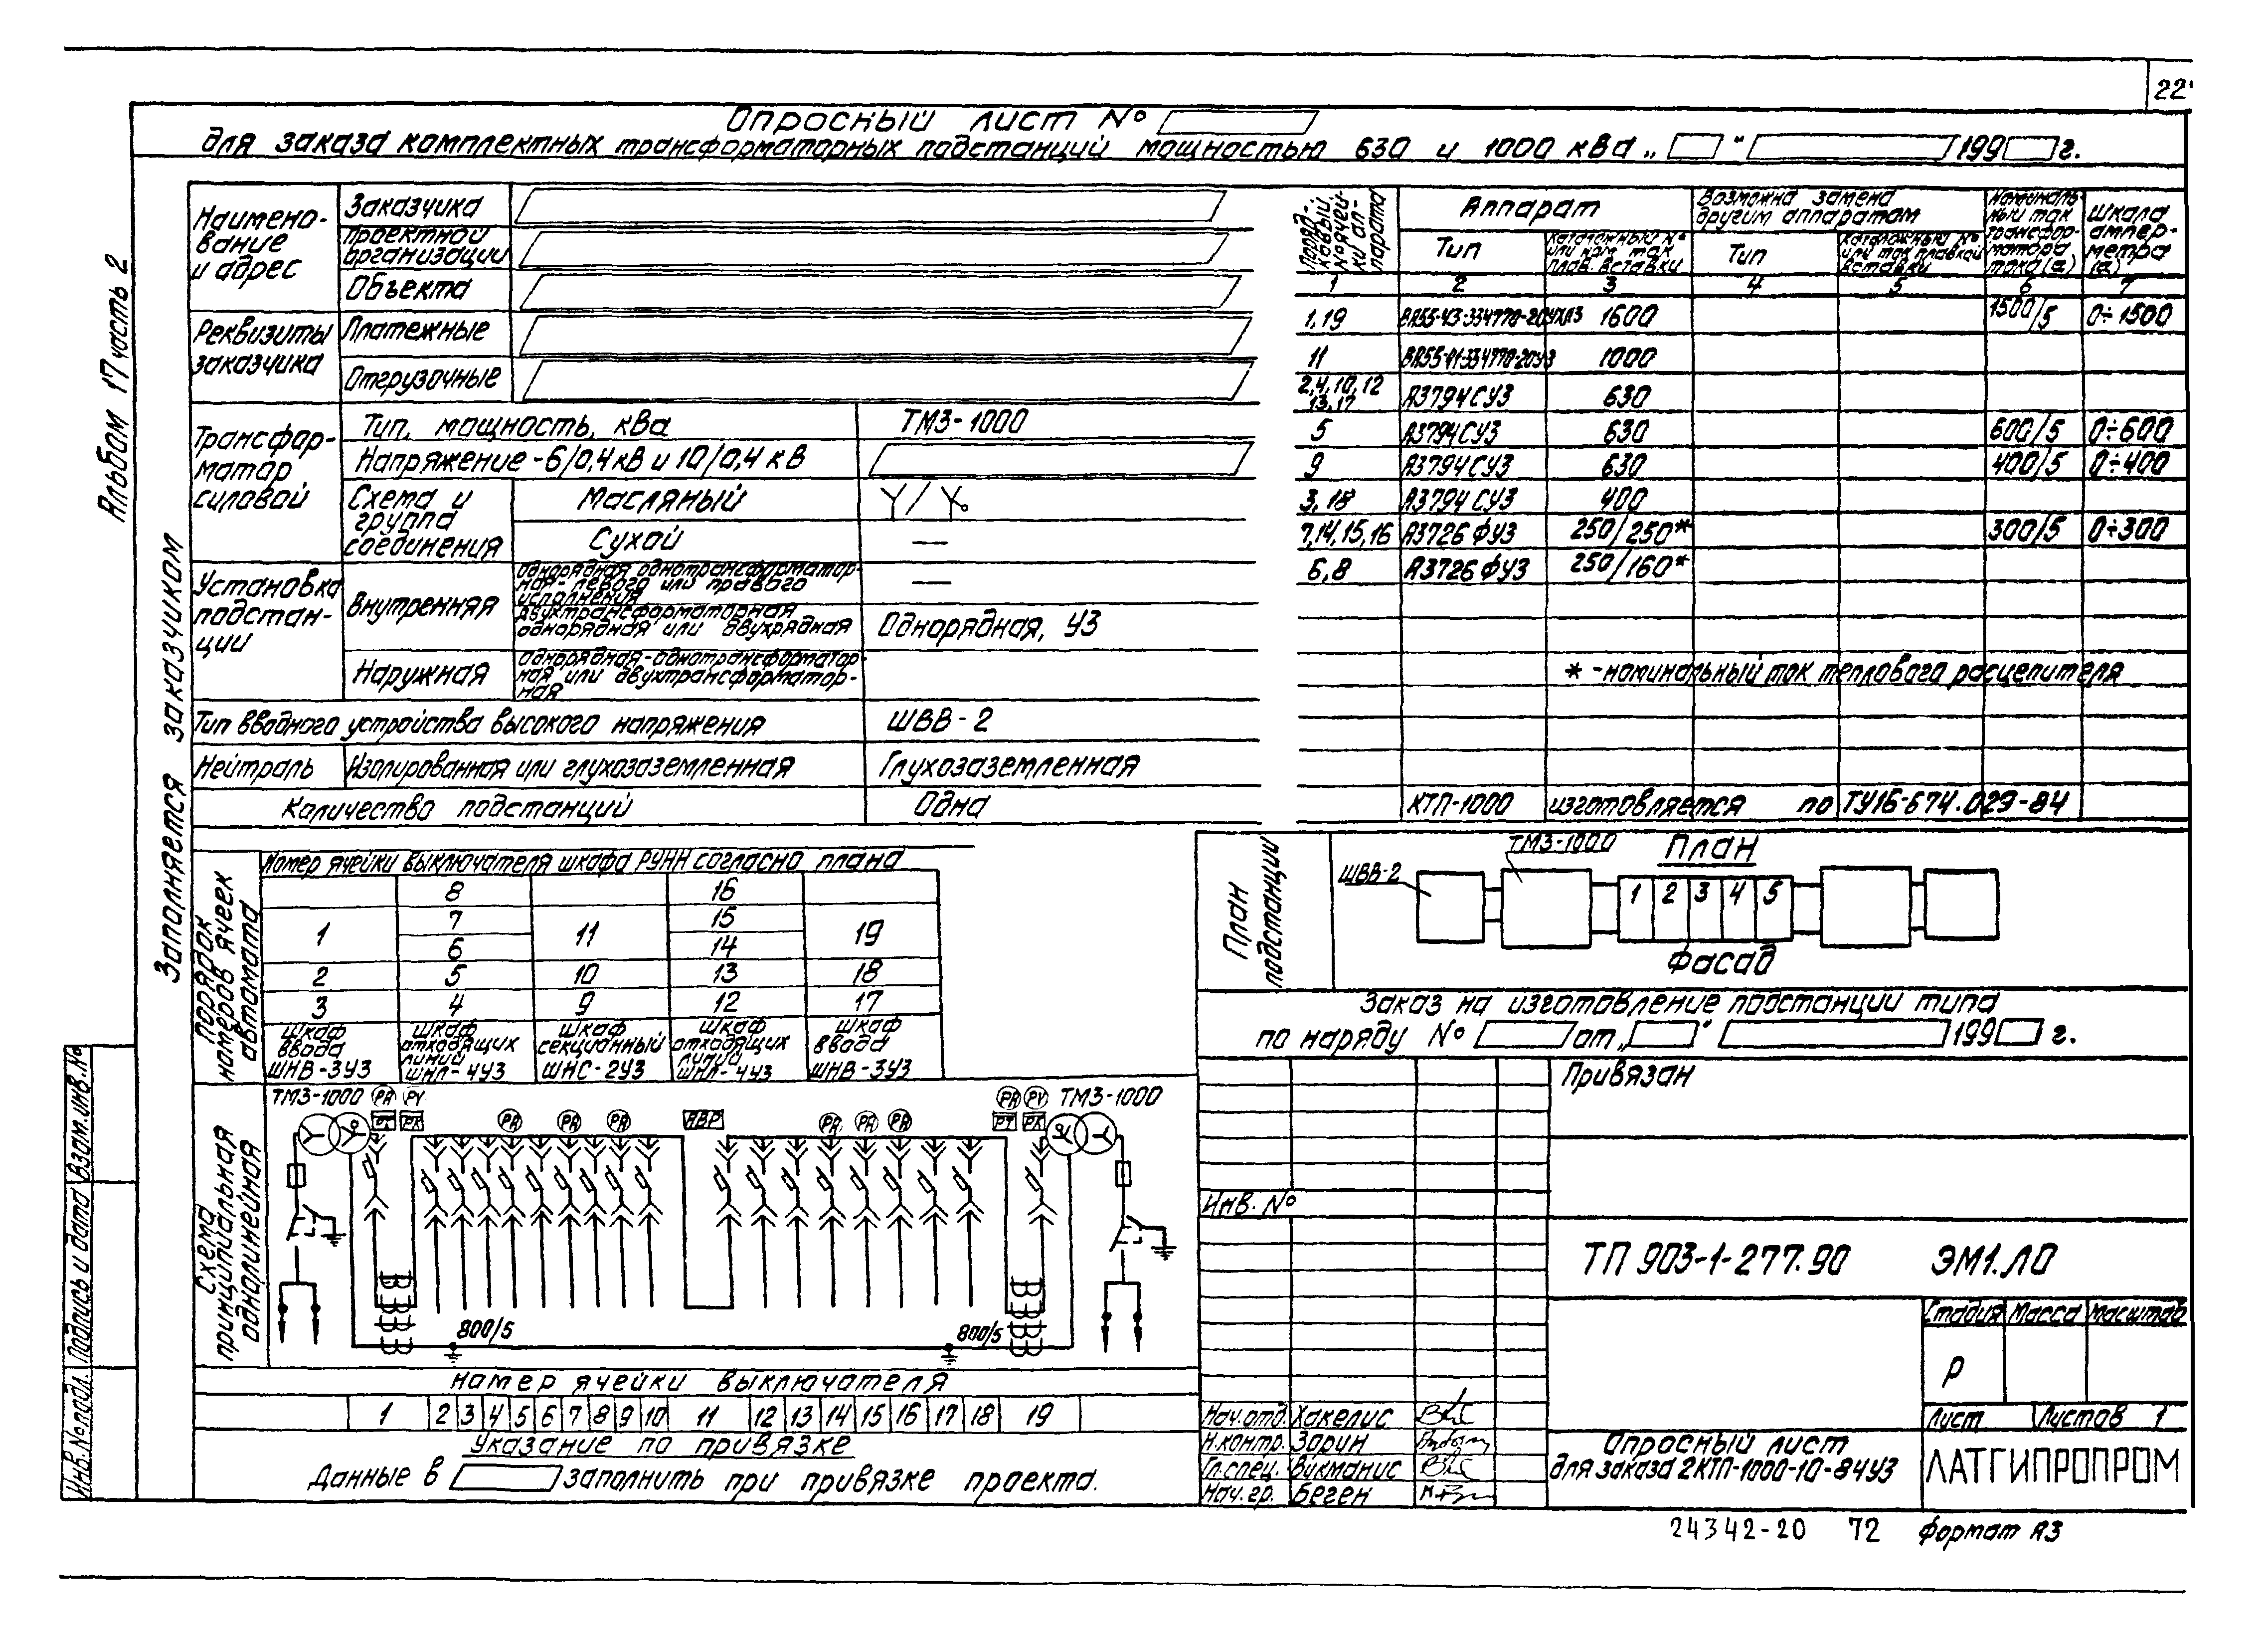 22
Опросный лист №
для заказа комплектных трансформаторных подстанций мощностью 630 и 1000 кВа „ " 199 г.
Альбом 17 часть 2
Заполняется заказчиком
Наимено-
вание
и адрес
Заказчика
Проектной
организации
Объекта
Реквизиты
заказчика
Платежные
Отгрузочные
Трансфор-
матор
силовой
Тип, мощность, кВа
ТМЗ-1000
Напряжение -6/0,4кВ и 10/0,4 кВ
Схема и
группа
соединения
Масляный
Y/Y₀
Сухой
—
Установка
подстан-
ции
Внутренняя
Однорядная однотрансформатор-
ная-левого или правого
исполнения
—
Двухтрансформаторная
однорядная или двухрядная
Однорядная, У3
Наружная
Однорядная-однотрансформатор-
ная или двухтрансформатор-
ная
Тип вводного устройства высокого напряжения
ШВВ-2
Нейтраль
Изолированная или глухозаземленная
Глухозаземленная
Количество подстанций
Одна
Поряд-
ковый
№ ячей-
ки ап-
парата
Аппарат
Возможна замена
другим аппаратом
Номиналь-
ный ток
трансфор-
матора
тока (а)
Шкала
ампер-
метра
(а)
Тип
Каталожный №
или ном. ток
плав. вставки
Тип
Каталожный №
или ток плавкой
вставки
1 2 3 4 5 6 7
1,19 ВА55-43-334770-20УХЛ3 1600 1500/5 0÷1500
11 ВА55-41-334770-20У3 1000
2,4,10,12
13,17 А3794СУ3 630
5 А3794СУ3 630 600/5 0÷600
9 А3794СУ3 630 400/5 0÷400
3,18 А3794СУ3 400
7,14,15,16 А3726ФУ3 250/250* 300/5 0÷300
6,8 А3726ФУ3 250/160*
* -номинальный ток теплового расцепителя
КТП-1000 изготовляется по ТУ16-674.029-84
Порядок
номеров ячеек
автомата
Номер ячейки выключателя шкафа РУНН согласно плана
8 16
1 7 11 15 19
6 14
2 5 10 13 18
3 4 9 12 17
шкаф
ввода
ШНВ-3У3
шкаф
отходящих
линий
ШНЛ-4У3
шкаф
секционный
ШНС-2У3
шкаф
отходящих
линий
ШНЛ-4У3
шкаф
ввода
ШНВ-3У3
План
подстанции
ШВВ-2
ТМЗ-1000
План
1 2 3 4 5
Фасад
Заказ на изготовление подстанции типа
по наряду № от „ " 199 г.
Схема
принципиальная
однолинейная
ТМЗ-1000 PA PV
PA PA PA
АВР
PA PA PA
PA PV ТМЗ-1000
800/5
800/5
Номер ячейки выключателя
1 2 3 4 5 6 7 8 9 10 11 12 13 14 15 16 17 18 19
Указание по привязке
Данные в заполнить при привязке проекта.
Привязан
Инв. №
ТП 903-1-277.90 ЭМ1.ЛО
Стадия Масса Масштаб
Р
Лист Листов 1
Нач.отд. Хакелис
Н.контр. Зарин
Гл.спец. Викманис
Нач.гр. Беген
Опросный лист
для заказа 2КТП-1000-10-84У3
ЛАТГИПРОПРОМ
Инв.№подл.
Подпись и дата
Взам.инв.№
24342-20 72 Формат А3